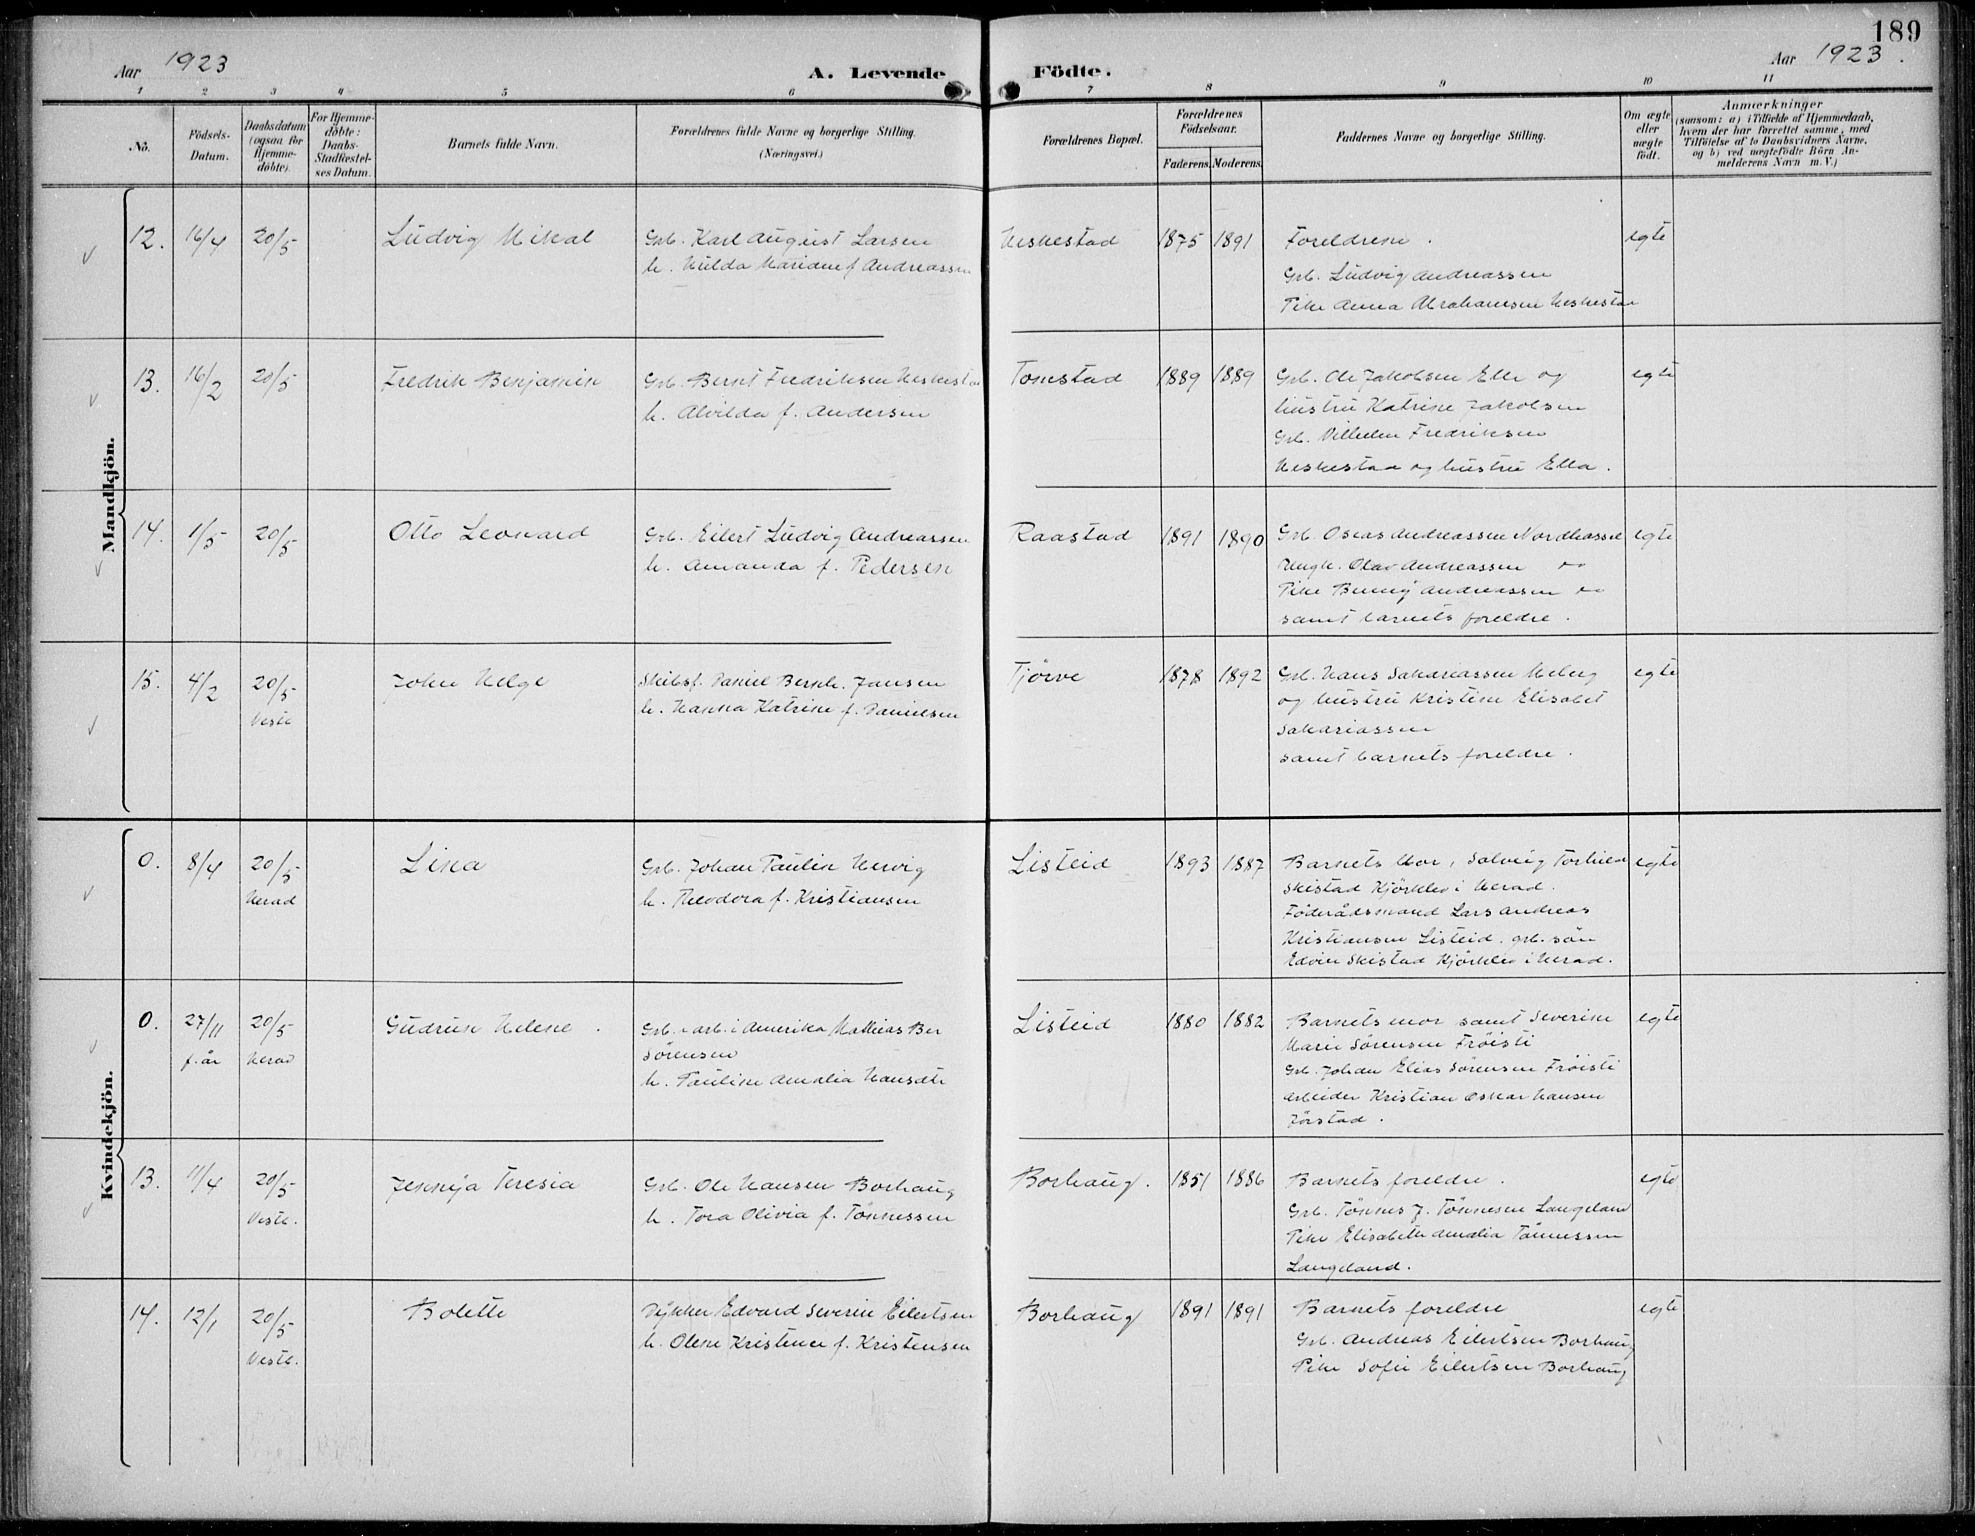 189
Aar 1923
A. Levende Födte.
Aar 1923.
1 2 3 4 5 6 7 8 9 10 11
No.
Födsels-
Datum.
Daabsdatum
(ogsaa for
Hjemme-
döbte).
For Hjemme-
döbte:
Daabs-
Stadfæstel-
ses Datum.
Barnets fulde Navn.
Forældrenes fulde Navne og borgerlige Stilling.
(Næringsvei.)
Forældrenes Bopæl.
Forældrenes
Födselsaar.
Faderens. Moderens.
Faddernes Navne og borgerlige Stilling.
Om ægte
eller
uægte
födt.
Anmærkninger
(saasom: a) i Tilfælde af Hjemmedaab,
hvem der har forrettet samme, med
Tilföielse af to Daabsvidners Navne,
og b) ved uægtefödte Börn An-
melderens Navn m. V.)
Mandkjön.
12. 16/4 20/5 Ludvig Mikal
Grb. Karl August Larsen
h. Hulda Mariane f Andreassen
Heskestad 1875 1891
Foreldrene.
Grb. Ludvig Andreassen
Pike Anna Abrahamsen Heskestad
egte
13. 16/2 20/5 Fredrik Benjamin
Grb. Bernt Fredriksen Heskestad
h. Alvilda f. Andersen
Tomstad 1889 1889
Grb. Ole Jakobsen Elle og
hustru Katrine Jakobsen
Grb. Vilhelm Fredriksen
Heskestad og hustru Ella.
egte
14. 1/5 20/5 Otto Leonard
Grb. Eilert Ludvig Andreassen
h. Amanda f. Pedersen
Raastad 1891 1890
Grb. Oskar Andreassen Nordhassel
Ungk. Olav Andreassen do
Pike Andreassen do
samt barnets foreldre.
egte
15. 4/2 20/5 John Helge
Vestb.
Skibsf. Daniel Bernh. Jansen
h. Hanna Katrine f. Danielsen
Tjørve 1878 1892
Grb. Hans Sakariassen Meberg
og hustru Kristine Elisabet
Sakariassen
samt barnets foreldre.
egte
Kvindekjön.
0. 8/4 20/5 Lina
Herad
Grb. Johan Paulin Hervig
h. Theodora f. Kristiansen
Listeid 1893 1887
Barnets Mor, Solveig Torhild
Skistad Kjörklev i Herad.
Föderådsmand Lars Andreas
Kristiansen Listeid. grb. sön
Edvin Skistad Kjörklev i Herad.
egte
0. 27/11 20/5 Gudrun Helene.
f. år Herad
Grb. arb. i Amerika Mathias Ber
Sörensen
h. Pauline Amalia Hansdtr
Listeid 1880 1882
Barnets mor samt Severine
Marie Sörensen Fröisti
Grb. Johan Elias Sörensen Fröisti
arbeider Kristian Oskar Hansen
Jörstad.
egte
13. 11/4 20/5 Jennyja Teresia
Vestb.
Grb. Ole Hansen Borhaug
h. Tora Olivia f. Tönnessen
Borhaug. 1851 1886
Barnets foreldre.
Grb. Tönnes J. Tönnesen Langeland
Pike Elisabeth Amalia Tönnessen
Langeland.
egte
14. 12/1 20/5 Bolette
Vestb.
Dykker Edvard Severin Eilertsen
h. Olene Kristence f. Kristensen
Borhaug 1891 1891
Barnets foreldre
Grb. Andreas Eilertsen Borhaug
Pike Sofie Eilertsen Borhaug
egte